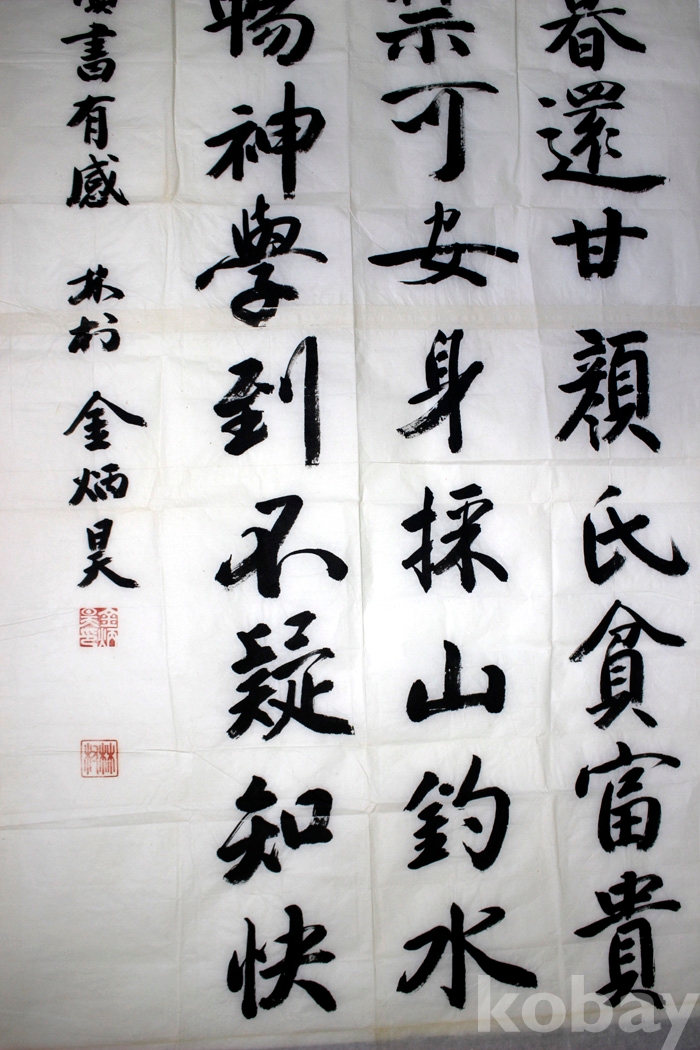 暮還甘顔氏貧富貴
禁可安身採山釣水
暢神學到不疑知快
書有感 林村 金炳昊
金炳昊印
林村
kobay